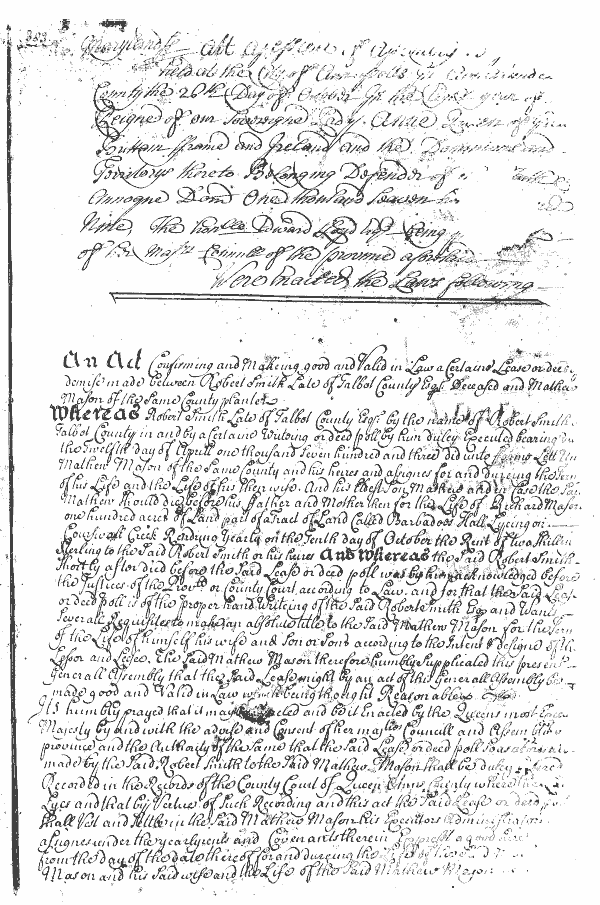 383
Maryland ss At a Session of Assembly
held at the City of Annapolis in Ann Arunde
County the 26th Day of October In the Eight year of
Reigne of our Soveraigne Lady Anne Queen of
Brittain ffrance and Ireland and the Dominions and
Territorys thereto Belonging Defender of
Annoque Domi One thousand Seaven
Nine, The honble Edward Lloyd Esqr being
of her Majtys Councill of the province aforesaid
Were Enacted the Laws following
An Act Confirming and Makeing good and Valid in Law a Certaine Lease or deed
demise made between Robert Smith Late of Talbot County Esqr Deceased and Mathew
Mason of the Same County planter
Whereas Robert Smith Late of Talbot County Esqr by the name of Robert Smith
Talbot County in and by a Certaine Writeing or deed poll by him duley Executed bearing
the twelfth day of Aprill one thousand Seven hundred and three did unto Lett Un
Mathew Mason of the Same County and his heires and assignes for and dureing the Term
of his Life and the Life of his then wife. And his Eldest Son Mathew and in Case the Said
Mathew Should die before his ffather and Mother then for the Life of Richard Mason
one hundred acres of Land part of a Tract of Land Called Barbadoes Hall Lyeing on
Creek Rending yearly on the Tenth day of October the Rent of two Shilling
Sterling to the Said Robert Smith or his heires And Whereas the Said Robert Smith
Shortly after died before the Said Lease or deed poll was by him acknowledged before
the Justices of the Provll or County Court according to Law. and for that the Said Lease
or deed poll is of the proper hand Writeing of the Said Robert Smith Esq and Wants
Severale Requisites to make an absolute title to the Said Mathew Mason for the Term
of the Life of himself his wife and Son or Sons according to the Intent & designe of the
Lessor and Lessee. The Said Mathew Mason therefore humbly Supplicated this present
Generall Assembly that the Said Lease might by an act of this Generall Assembly be
made good and Valid in Law which being thought Reasonable
It is humbly prayed that it may Enacted and be it Enacted by the Queens most
Majesty by and with the advise and Consent of her majtys Councill and Assembly
province and the Authority of the Same that the Said Lease or deed poll So as
made by the Said Robert Smith to the Said Mathew Mason Shall be duley
Recorded in the Records of the County Court of Queen Anns County where the
Lyes and that by Vertue of Such Recording and this act the Said Lease or deed
Shall Vest and Settle in the Said Mathew Mason his Executors Administrators
assignes under the yearly rents and Covenants therein a good
from the day of the date thereof for and dureing the
Mason and his Said wife and the Life of the Said Mathew Mason